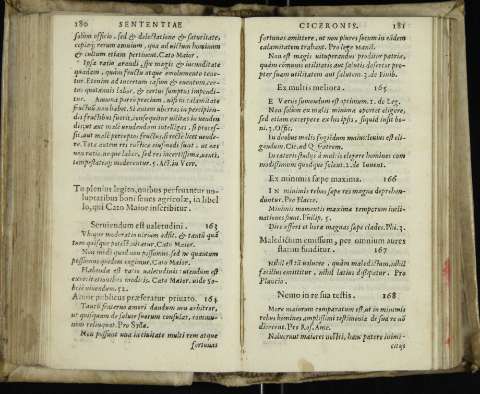 180 SENTENTIAE
solùm officio, sed & delectatione & saturitate,
copiaq́; rerum omnium, quæ ad uictum hominum
& cultum etiam pertinent. Cato Maior.
Ipsa ratio arandi, spe magis & iucunditate
quadam, quàm fructu atque emolumento tene-
tur. Etenim ad incertum casum & euentum, cer-
tus quotannis labor, & certus sumptus impendi-
tur. Annona porrò precium, nisi in calamitate
fructuũ, non habet. Si autem ubertas in percipien-
dis fructibus fuerit, consequitur uilitas in uenden
dis; ut aut malè uendendum intelligas, si proces-
sit, aut malè perceptos fructus, si recte licet uende-
re. Totæ autem res rusticæ eiusmodi sunt, ut eas
non ratio, neque labor, sed res incertissimæ, uenti,
tempestatesq́; moderentur. 5. Act. in Verr.
Tu plenius legito, quibus perfruantur uo-
luptatibus boni senes agricolæ, in libel
lo, qui Cato Maior inscribitur.
Seruiendum est ualetudini. 163
Vbique moderatio uirium adsit, & tantũ quã
tum quisque potest nitatur. Cato Maior.
Non modò quod non possumus, sed ne quantum
possumus quidem cogimur. Cato Maior.
Habenda est ratio ualetudinis: utendum est
exercitationibus modicis. Cato Maior. uide So-
brie uiuendum. 52.
Amor publicus præferatur priuato. 164
Tantũ fraterno amori dandum mu arbitror,
ut quisquam de salute suorum consulat, commu-
nem relinquat. Pro Sylla.
Non possunt una in ciuitate multi rem atque
fortunas
CICERONIS. 181
fortunas amittere, ut non plures secum in eãdem
calamitatem trahant. Pro lege Manil.
Non est magis uituperandus proditor patriæ,
quàm communis utilitatis aut salutis desertor pro-
pter suam utilitatem aut salutem. 3. de Finib.
Ex multis meliora. 165
E Variis sumendum est optimum. 2. de Leg.
Non solùm ex malis minima oportet eligere,
sed etiam excerpere ex his ipsis, siquid insit bo-
ni. 3. Offic.
In duobus malis fugiẽdum maius, leuius est eli-
gendum. Cic. ad Q. Fratrem.
In cæteris studijs à multis eligere homines com
modissimum quodque solent. 2. de Inuent.
Ex minimis sæpe maxima. 166
IN minimis rebus sæpe res magna deprehen-
duntur. Pro Flacco.
Minimis momentis maximæ temporum incli-
nationes fiunt. Philip. 5.
Dies affert et hora magnas sæpe clades. Phi. 3.
Maledictum emissum, per omnium aures
statim funditur. 167
Nihil est tã uolucre, quàm maledictum, nihil
facilius emittitur, nihil latius dißipatur. Pro
Plancio.
Nemo in re sua testis. 168
More maiorum comparatum est, ut in minimis
rebus homines amplissimi testimonia de sua re nõ
dicerent. Pro Ros. Ame.
Noluerunt maiores nostri, hanc patere inimi-
citijs